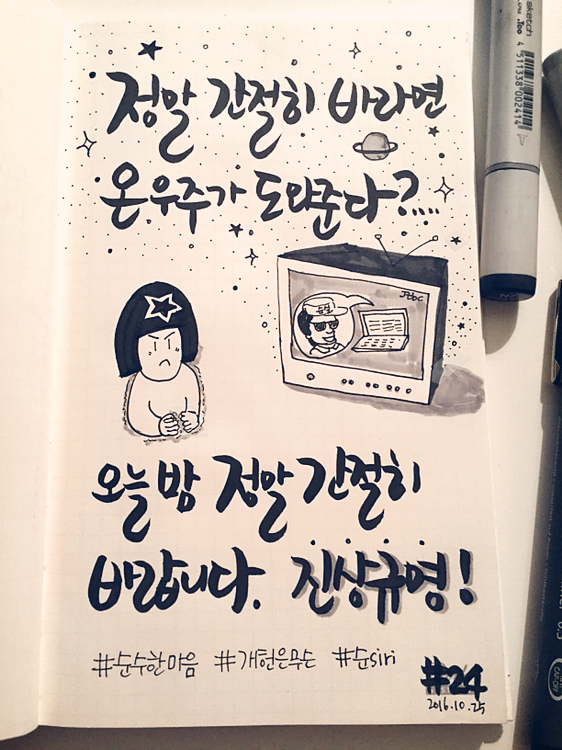 정말 간절히 바라면
온 우주가 도와준다?....
Jtbc
오늘 밤 정말 간절히
바랍니다. 진상규명!
#순수한마음 #개헌은무슨 #순siri
#24
2016.10.25
sketch
.Too
4 511338 002414